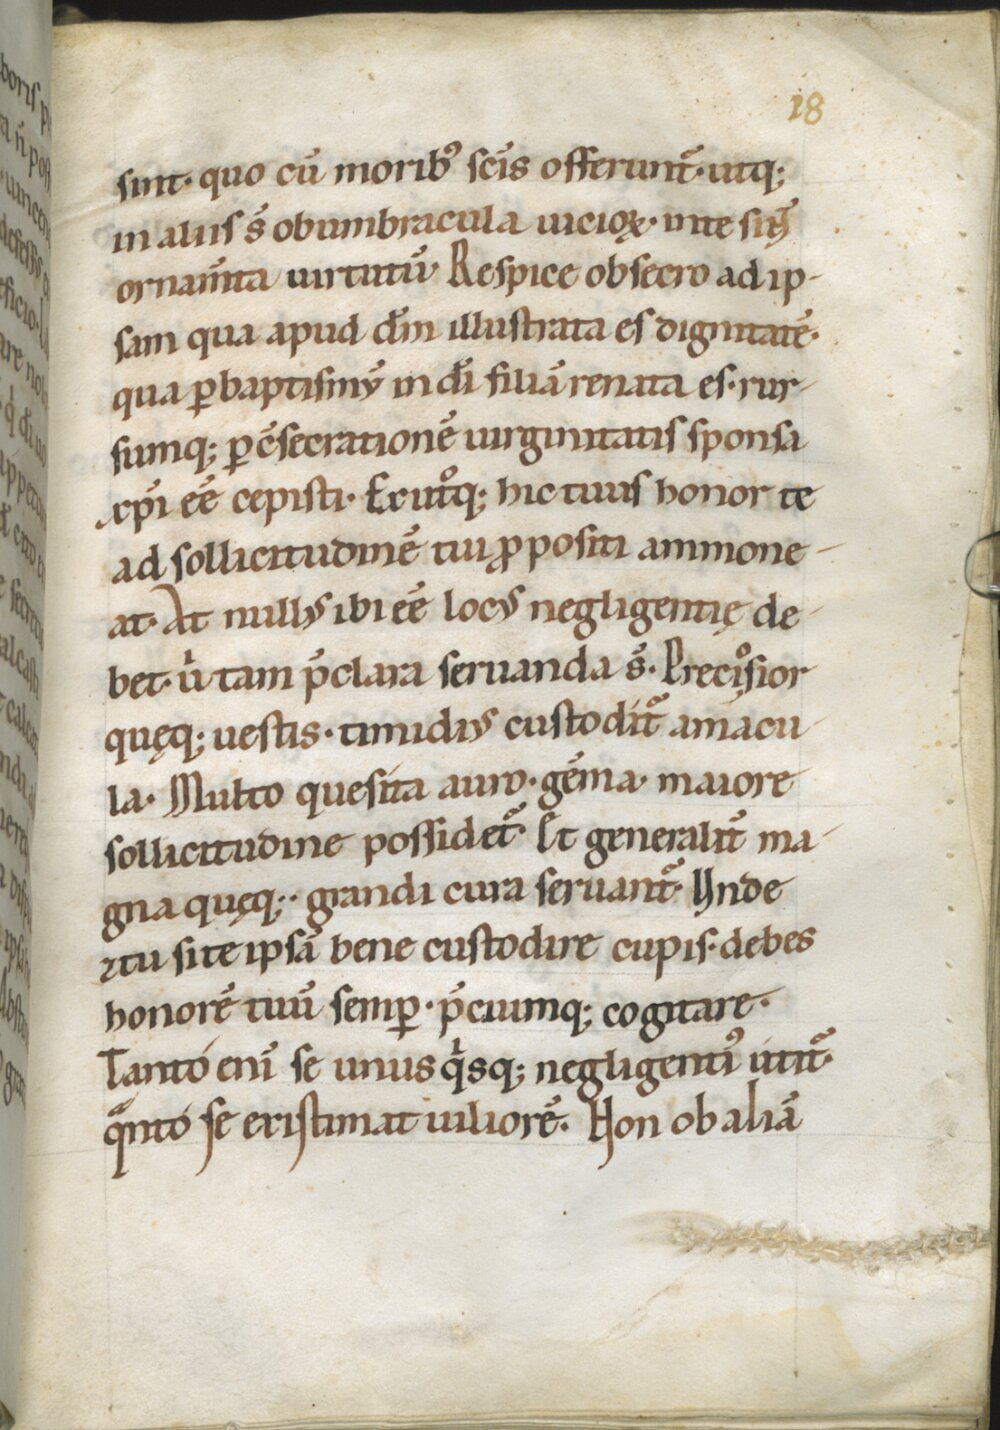 18
sint· quo cū morib᾽ sc̄is offerunt᷑· utq;
in aliis s̄ obumbracula uicioꝝ· in te siꝰt
ornam̄ta uirtutū· Respice obsecro ad ip-
sam qua apud dm̄ illustrata es dignitatē·
qua ꝑ baptismꝰ in dī filiā renata es· rur-
sumq; ꝑ c̄secrationē uirginitatis sponsa
xp̄i eē cepisti· Ex utᵒq; hic tuus honor te
ad sollicitudinē tui ꝓpositi ammone-
at· At nullꝰ ibi eē locꝰ negligentię de-
bet· u̍ tam p̄clara seruanda s̄· Preciᵒsior
quęq; uestis· timidiꝰ custodit᷑ a macu-
la· Multo quesita auro· gēma· maiore
sollicitudine possidet᷑· Et generalit̄ ma-
gna quęq;· grandi cura seruant᷑· Unde
⁊ tu si te ipsā bene custodire cupis· debes
honorē tuū semꝑ· p̄ciumq; cogitare·
Tanto enī se unus qⁱsq; negligenti᾽ utit᷑·
qᵃnto se existimat uiliorē· Non ob aliā